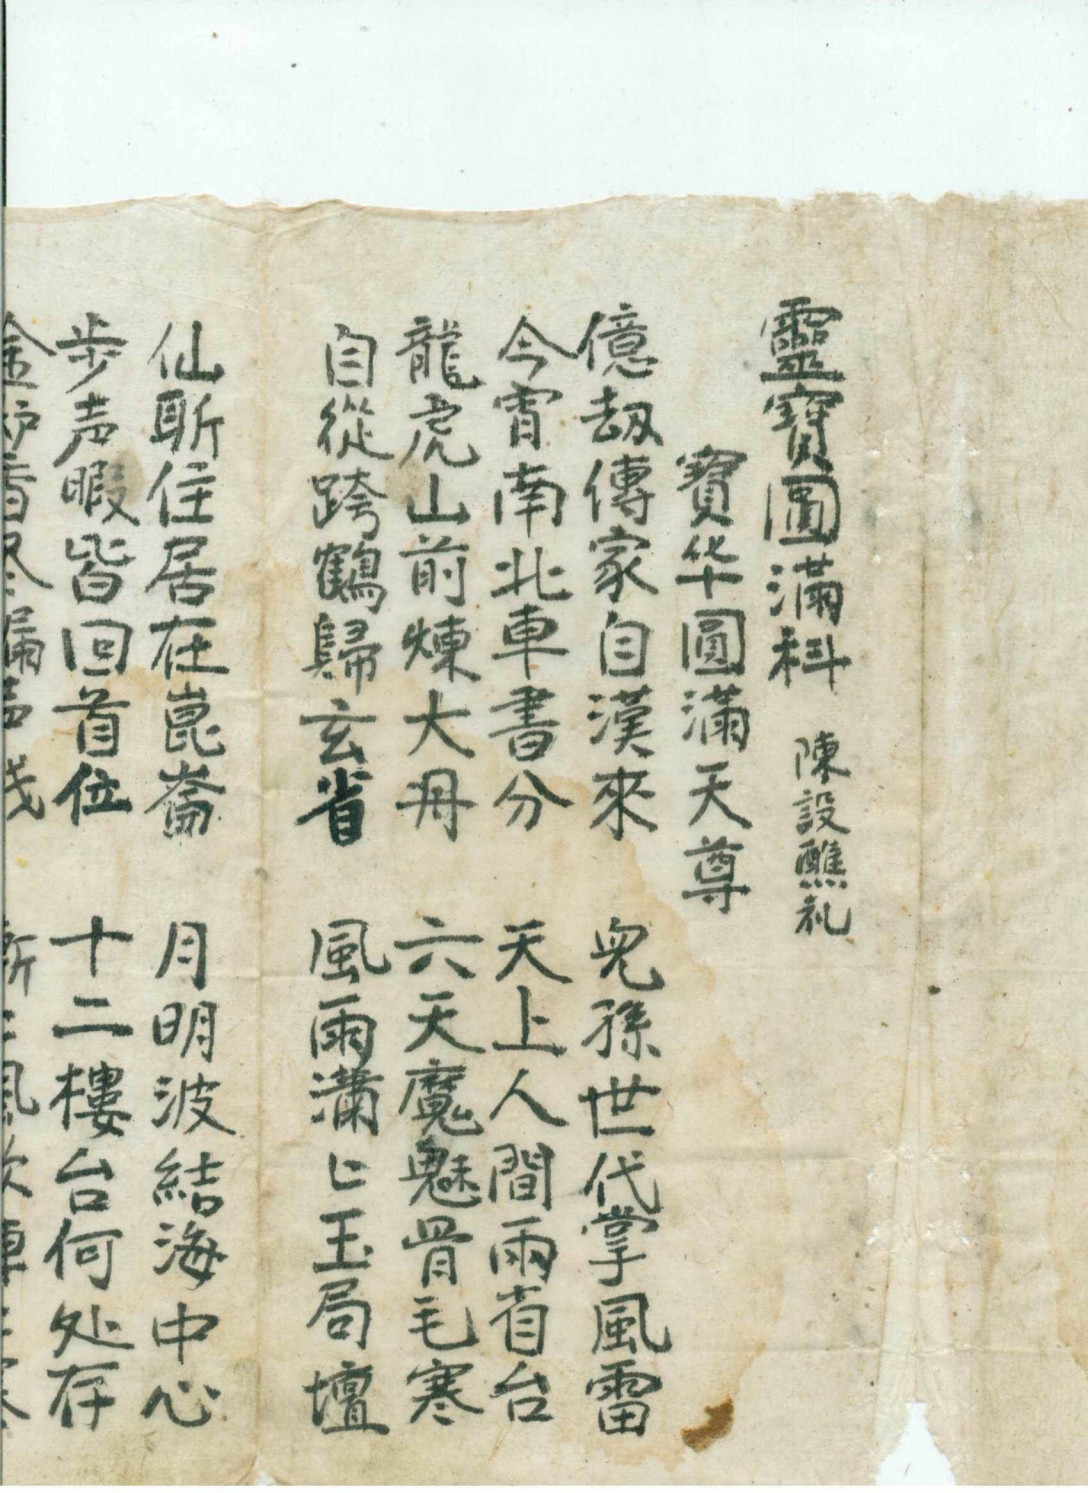 靈寶圓滿科 陳設醮礼
寳华圓滿天尊
億劫傳家自漢來 兒孫世代掌風雷
今宵南北車書分 天上人間兩省台
龍虎山前煉大丹 六天魔魅骨毛寒
自從跨鶴歸玄省 風雨瀟〻玉局壇
仙斷住居在崑崙 月明波結海中心
步声暇皆回首位 十二樓台何处存